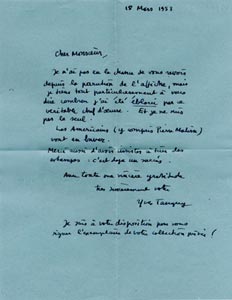 18 Mars 1953
Cher Monsieur,
Je n'ai pas eu la chance de vous revoir
depuis la parution de l'affiche, mais
je tiens tout particulièrement à vous
dire combien j'ai été ébloui par ce
véritable chef d'œuvre. Et je ne suis
pas le seul.
Les Américains (y compris Pierre Matisse)
vont en baver.
Merci aussi d'avoir à
estampes : c'est déjà un succès.
Avec toute ma sincère gratitude
très sincèrement votre
Yves Tanguy
Je suis à votre disposition pour vous
signer l'exemplaire de votre collection privée !